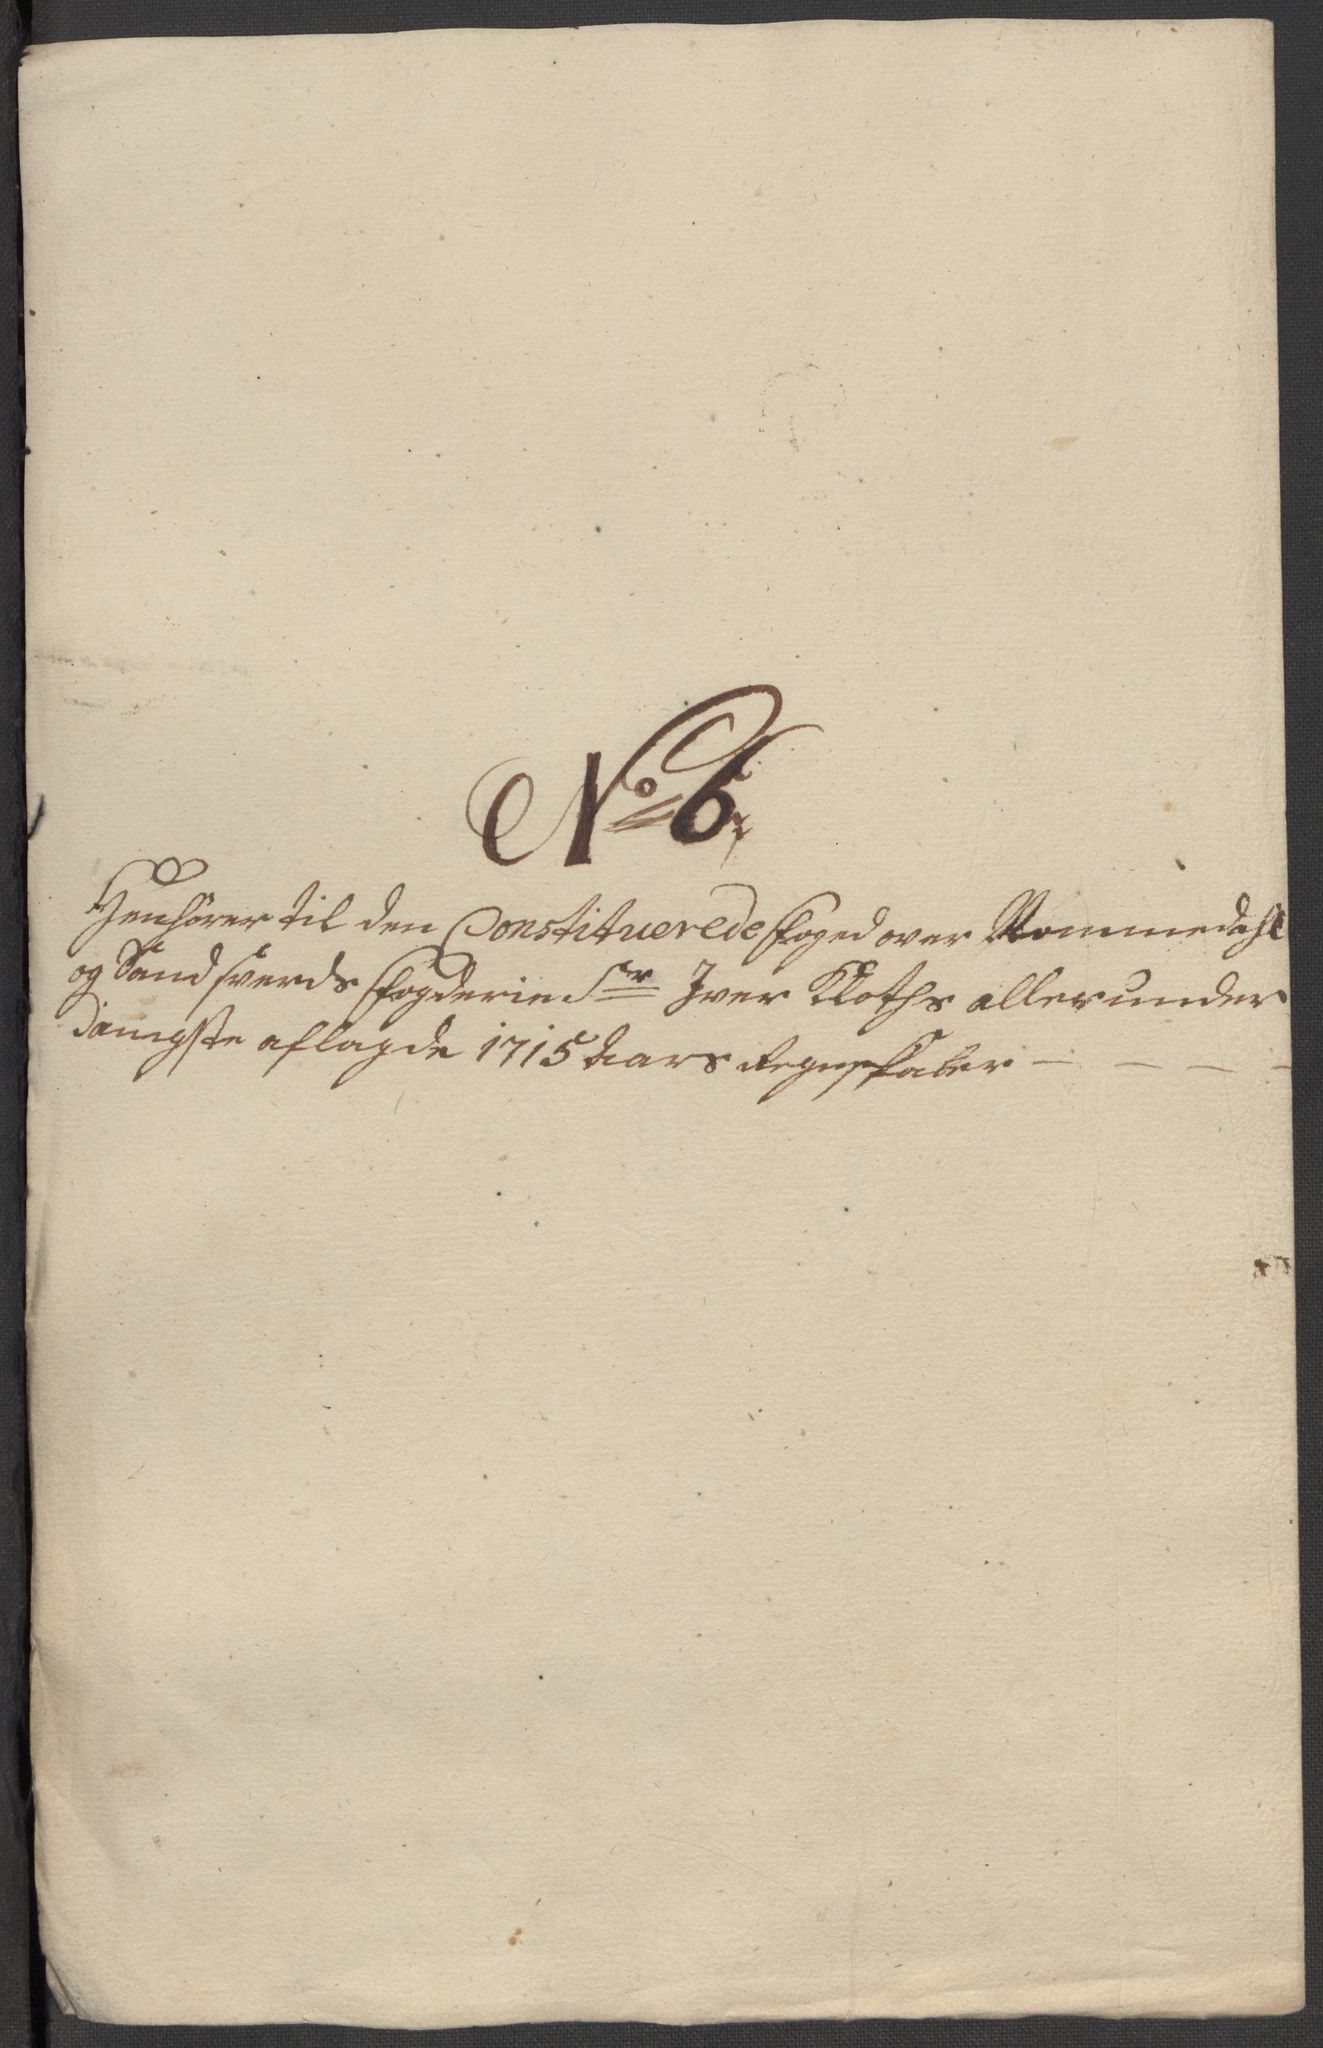 No 6.
Henhörer til den Constituerede Foged over Nommedahl
og Sandsverds Fogderie Sr Iver Kloths allerunder
danigste aflagde 1715 Aars Regnskaber - - - -